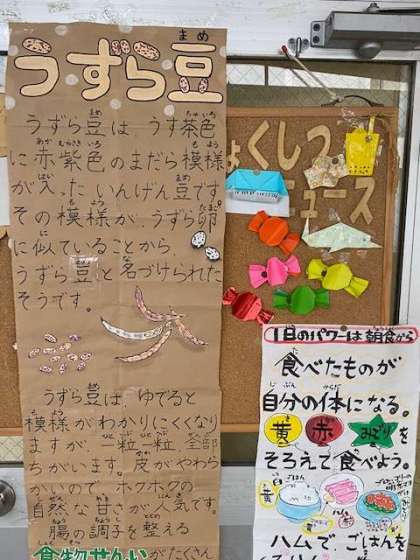 うずら豆
うずら豆は、うす茶色
に赤紫色のまだら模様
が入ったいんげん豆です。
その模様が、うずら卵
に似ていることから、
うずら豆と名づけられた
そうです。
うずら豆は、ゆでると
模様がわかりにくくなり
ますが、一粒一粒、全部
ちがいます。皮がやわら
かいので、ホクホクの
自然な甘さが人気です。
腸の調子を整える
食物せんいがたくさん
ょくしつ
ニュース
1日のパワーは朝食から
食べたものが
自分の体になる。
黄 赤 みどり
そろえて食べよう。
ハムで、ごはんを